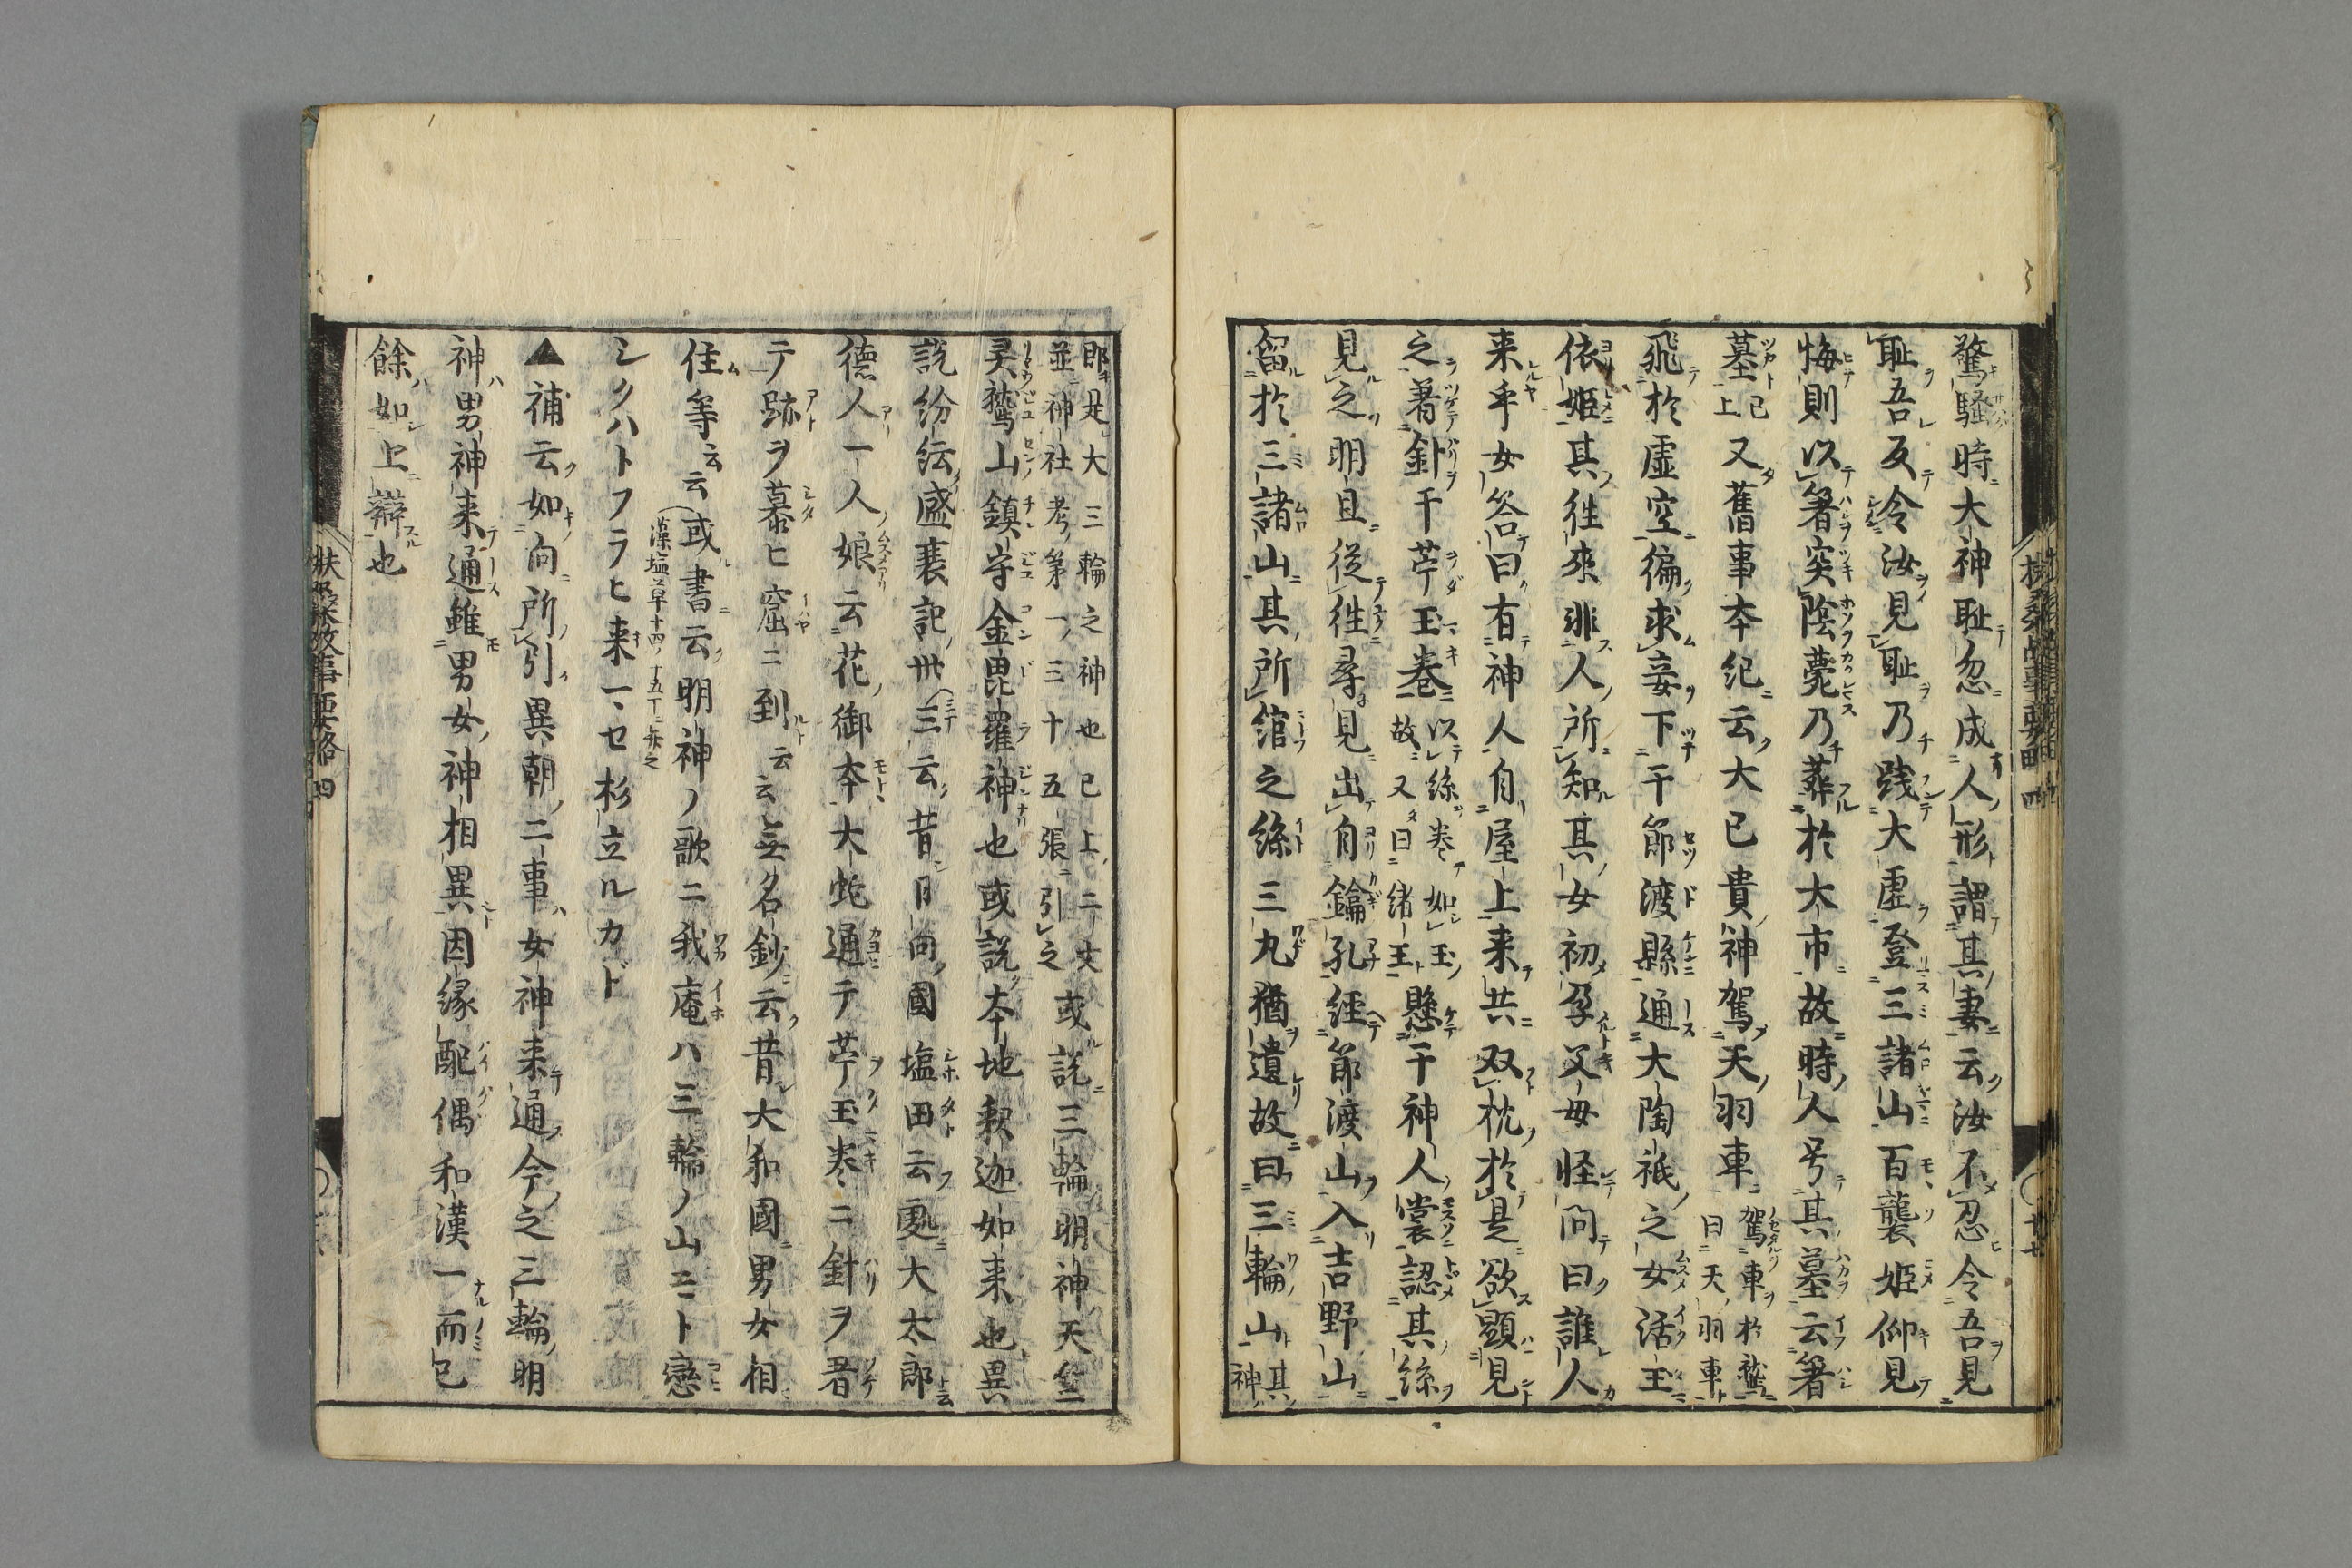 驚騒時大神耻忽成人形謂其妻云汝不忍令吾見
耻吾反令汝見耻乃践大虚登三諸山百襲姫仰見
悔則以箸突陰薨乃葬於大市故時人号其墓云箸
墓已上又舊事本紀云大已貴神駕天羽車駕車於鷲曰天羽車
飛於虚空徧求妾下干節渡縣通大陶祇之女活玉
依姫其徃來非人所知其女初孕父母怪問曰誰人
来乎女答曰有神人自屋上来共双枕於是欲顕見
之著針干苧玉巻以絲巻如玉故又曰緒玉懸干神人裳認其絲
見之明旦従徃尋見出自鑰孔経節渡山入吉野山
留於三諸山其所綰之絲三丸猶遺故曰三輪山其神
即是大三輪之神也已上二文或説三輪明神天竺
並神社考第一三十五張引之
灵鷲山鎮守金毘羅神也或説本地釈迦如来也異
説紛紜盛衰記卅三云昔日向國塩田云處大太郎
徳人一人娘云花御本大蛇通テ苧玉巻ニ針ヲ著
テ跡ヲ慕ヒ窟ニ到云云無名鈔云昔大和國男女相
住等云云或書云明神ノ歌ニ我庵ハ三輪ノ山モト戀
藻塩草十四ノ十五丁ニ無之
シクハトフラヒ来マセ杉立ルカド
▲補云如向所引異朝二事女神来通今之三輪明
神男神来通雖男女神相異因縁配偶和漢一而已
餘如上辯也
扶桑故事要略四